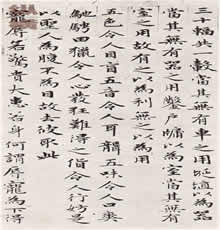 三十輻共一轂當其無有車之用埏埴以為器
當其無有器之用鑿戶牖以為室當其無有
室之用故有之以為利無之以為用
五色令人目盲五音令人耳聾五味令人口爽
馳騁田獵令人心發狂難得之貨令人行妨是
以聖人為腹不為目故去彼取此
寵辱若驚貴大患若身何謂寵辱寵為下得